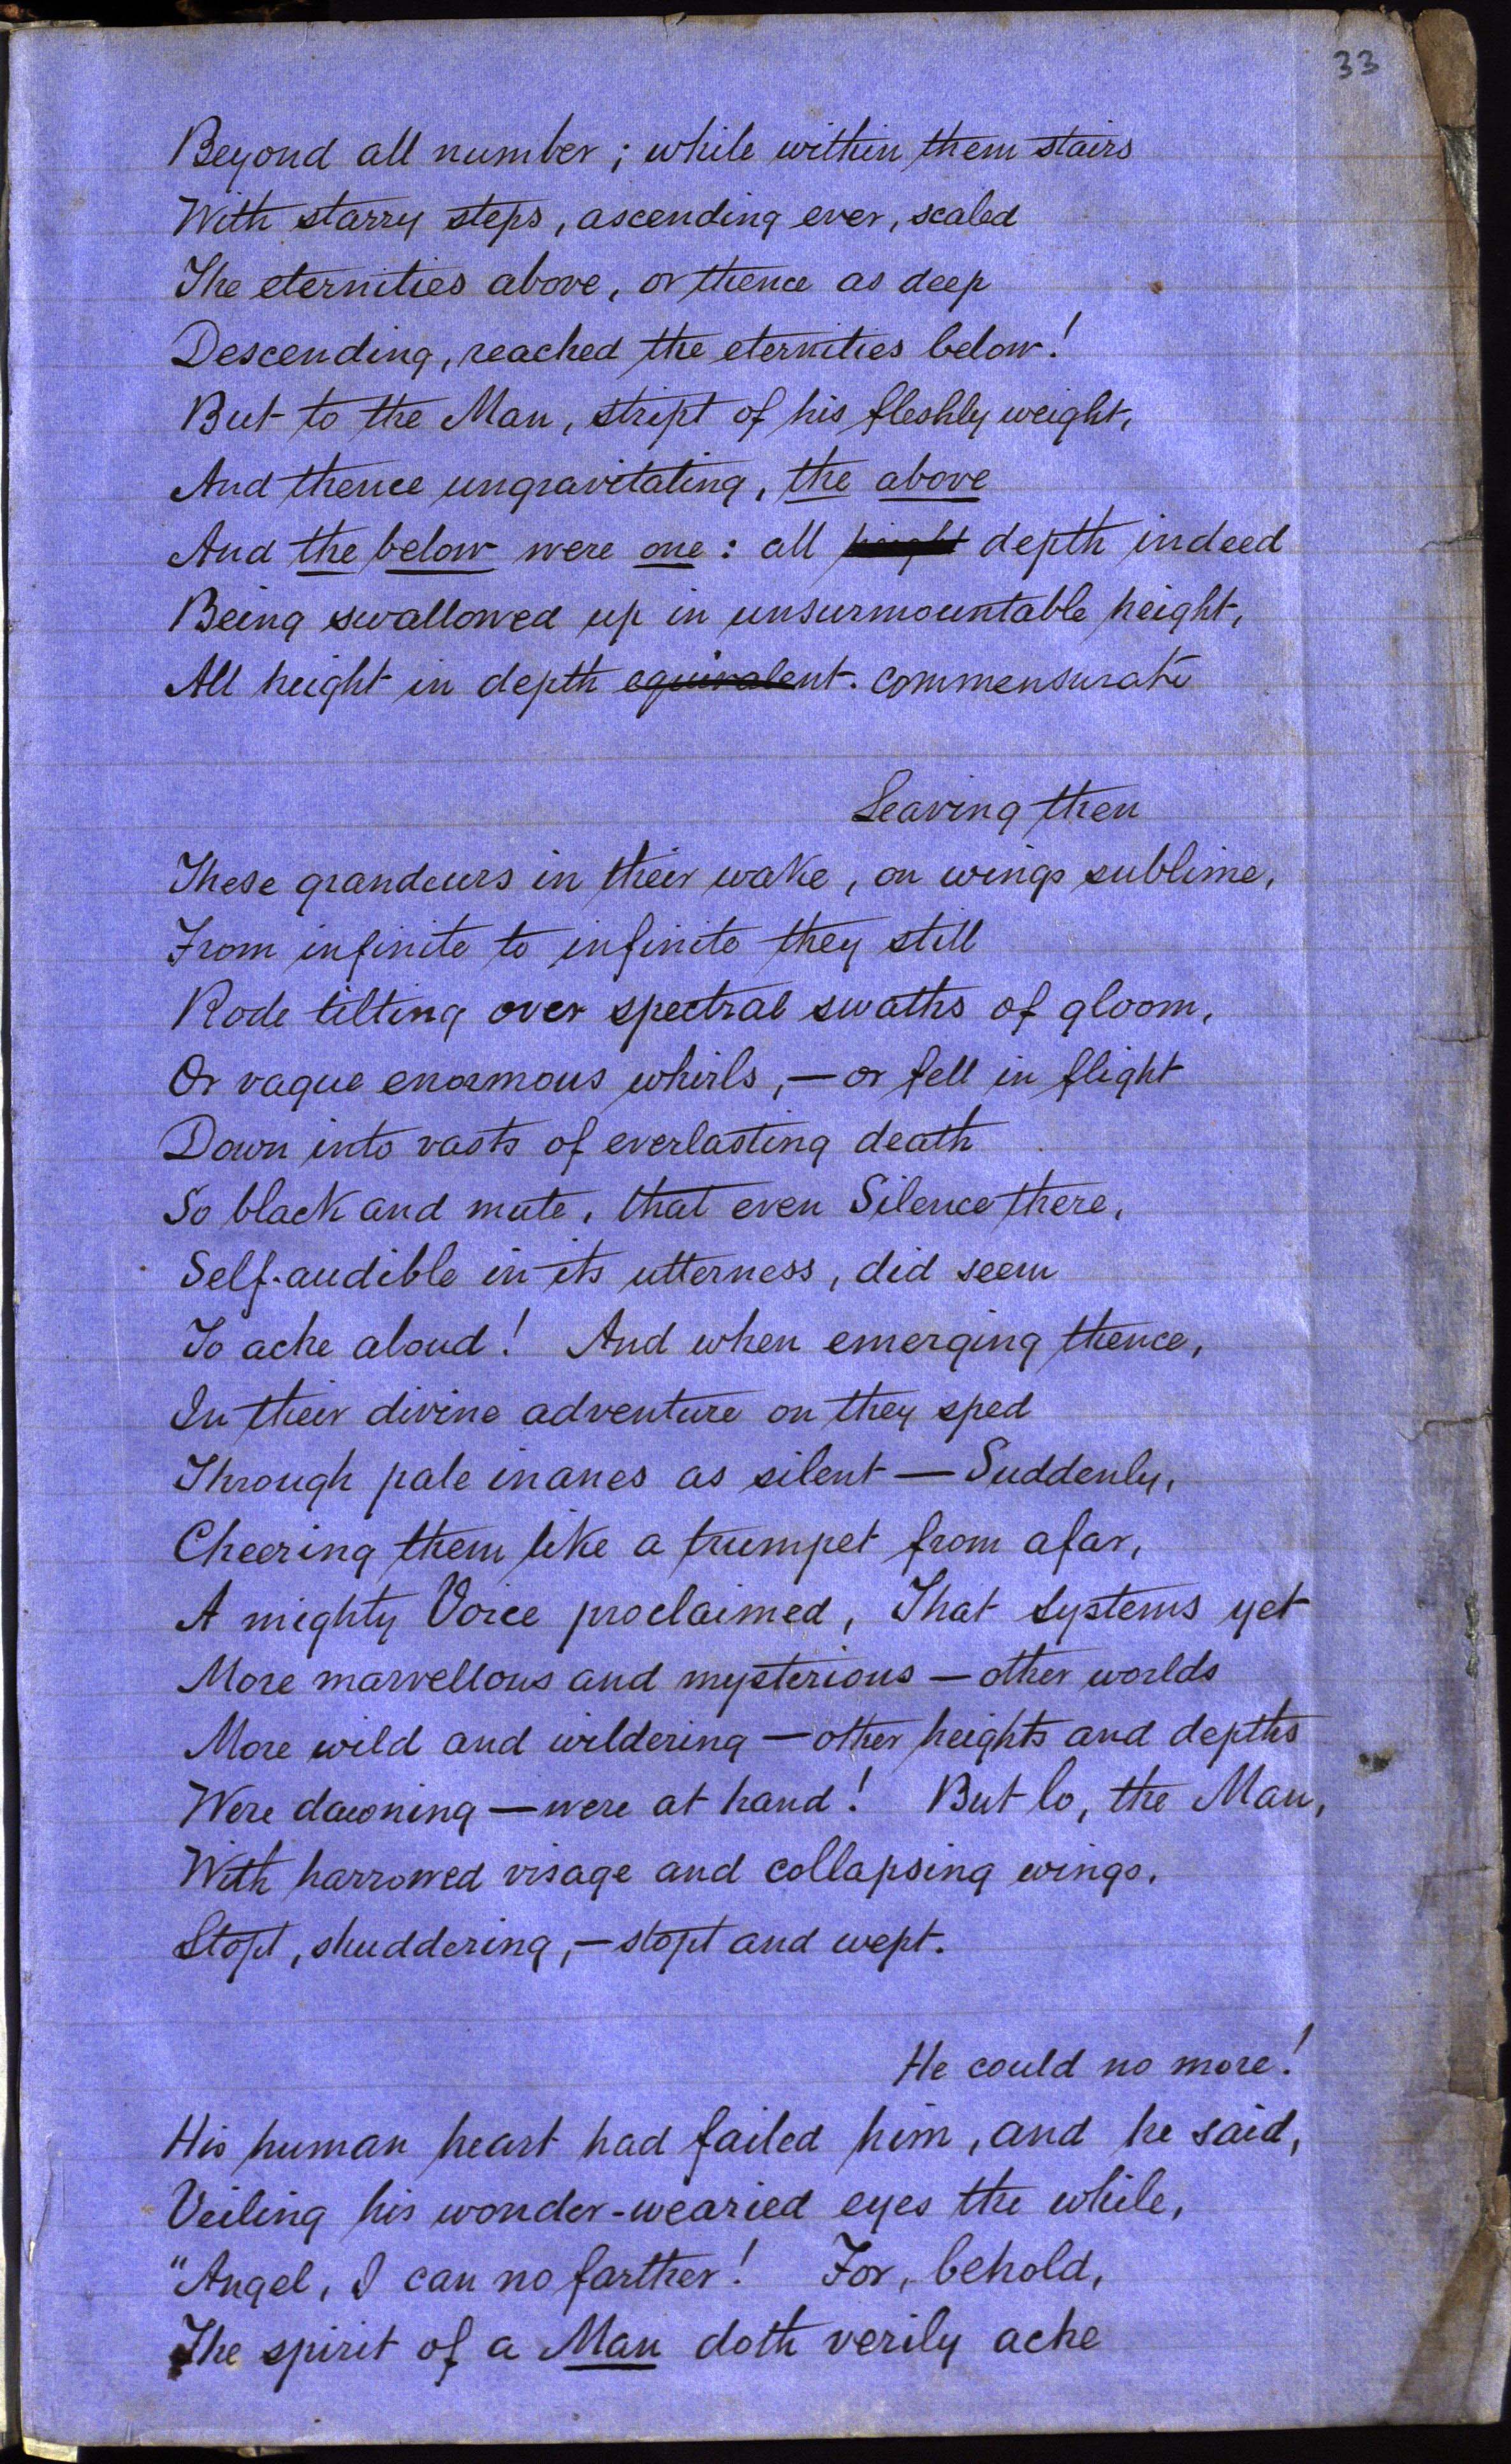 33
Beyond all number; while within them stairs
With starry steps, ascending ever, scaled
The eternities above, or thence as deep
Descending, reached the eternities below!
But to the Man, stript of his fleshly weight,
And thence ungravitating, the above
And the below were one: all height depth indeed
Being swallowed up in unsurmountable height,
All height in depth equivalent. commensurate
Leaving then
These grandeurs in their wake, on wings sublime,
From infinite to infinite they still
Rode tilting over spectral swaths of gloom,
Or vague enormous whirls,—or fell in flight
Down into vasts of everlasting death
So black and mute, that even Silence there,
Self-audible in its utterness, did seem
To ache aloud! And when emerging thence,
In their divine adventure on they sped
Through pale inanes as silent—Suddenly,
Cheering them like a trumpet from afar,
A mighty Voice proclaimed, That systems yet
More marvellous and mysterious—other worlds
More wild and wildering—other heights and depths
Were dawning—were at hand! But lo, the Man,
With harrowed visage and collapsing wings,
Stopt, shuddering,—stopt and wept.
He could no more!
His human heart had failed him, and he said,
Veiling his wonder-wearied eyes the while,
"Angel, I can no farther! For, behold,
The spirit of a Man doth verily ache